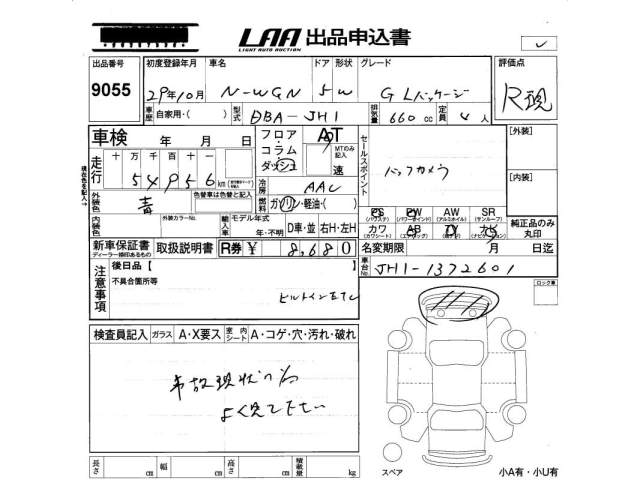 LAA 出品申込書
LIGHT AUTO AUCTION
出品番号 初度登録年月 車名 ドア 形状 グレード 評価点
9055 29年10月 N-WGN 5 W G Lパッケージ R現
車歴 自家用・( ) 型式 DBA-JH1 排気量 660 cc 定員 4 人
車検 年 月 日 フロア・コラム・ダッシュ AT MTのみ記入 速 セールスポイント [外装]
走行 十 万 千 百 十 一
54956 km
バックカメラ
[内装]
冷房 AAC
外装色 青 色替車は色替と記入 燃料 ガソリン・軽油・( )
内装色 外装カラーNo. 輸入車 モデル年式 年・不明 D車・並 右H・左H
PS PW AW SR
(パワステ) (パワーウインド) (アルミホイル) (サンルーフ)
カワ AB TV ナビ 純正品のみ丸印
(カワシート) (エアバッグ) (テレビ) (ナビゲーション)
新車保証書 取扱説明書 R券 ¥ 8,680 名変期限 月 日迄
ディーラー捺印あるもの
車台No. JH1-1372601
注意事項 後日品【
不具合箇所等
ビルトインETC
ロック車
検査員記入 ガラス A・X要ス 室内シート A・コゲ・穴・汚れ・破れ
事故現状の為
よく見て下さい
長さ cm 幅 cm 高さ cm 積載量 kg
スペア 小A有・小U有